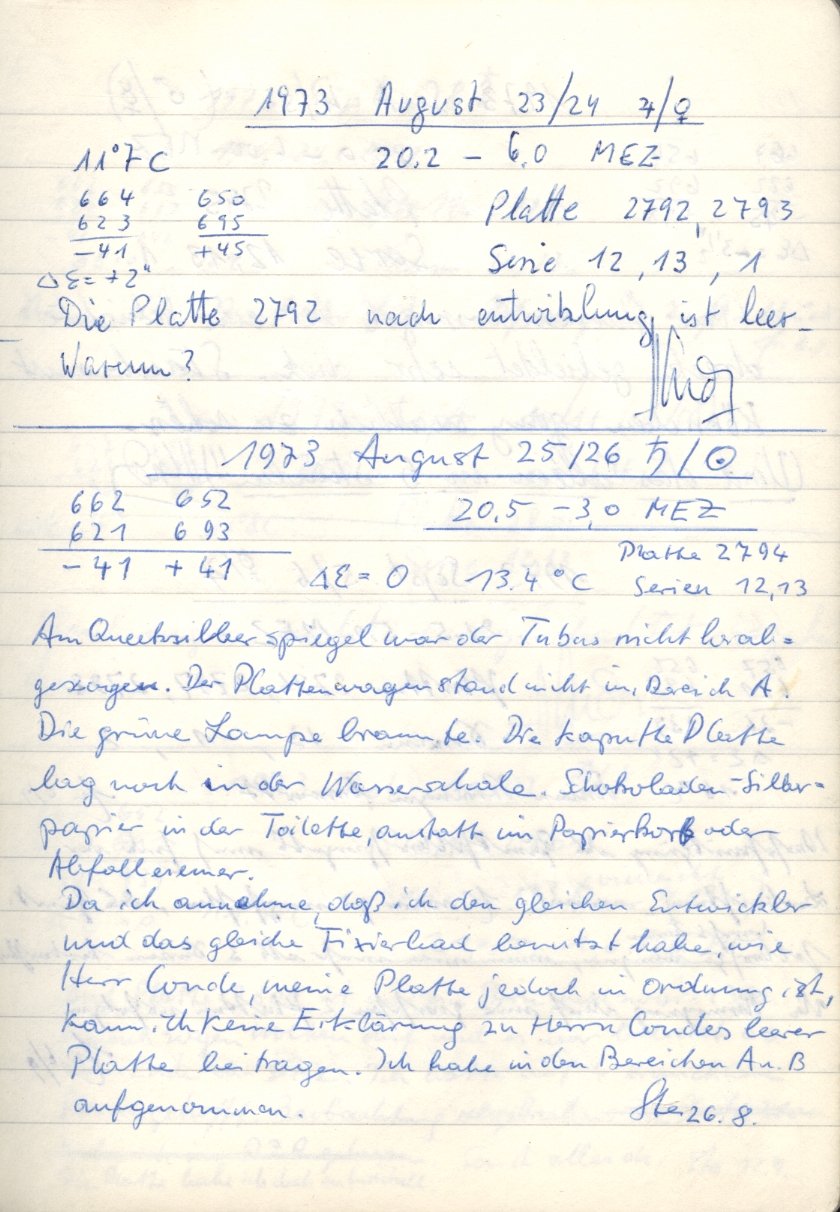 1973 August 23/24 ♃/♀
11°7 C 20.2 – 6.0 MEZ
664 650 Platte 2792, 2793
623 695
-41 +45 Serie 12, 13, 1
Δε = +2"
Die Platte 2792 nach entwiklung, ist leer –
Warum?
1973 August 25/26 ♄/☉
662 652 20,5 – 3,0 MEZ
621 693 Platte 2794
-41 +41 Δε = 0 13.4°C Serien 12,13
Am Quecksilberspiegel war der Tubus nicht herab=
gezogen. Der Plattenwagen stand nicht in Bereich A.
Die grüne Lampe brannte. Die kaputte Platte
lag noch in der Wasserschale. Schokoladen-Silber=
papier in der Toilette, anstatt im Papierkorb oder
Abfalleimer.
Da ich annehme, daß ich den gleichen Entwickler
und das gleiche Fixierbad benutzt habe, wie
Herr Conde, meine Platte jedoch in Ordnung ist,
kann ich keine Erklärung zu Herrn Condes leerer
Platte beitragen. Ich habe in den Bereichen A u. B
aufgenommen. Ste 26.8.